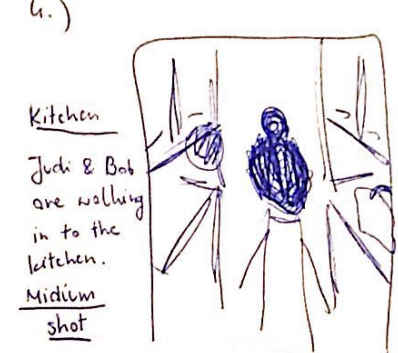 4.)
Kitchen
Judi & Bob
are walking
in to the
kitchen.
Midium
shot